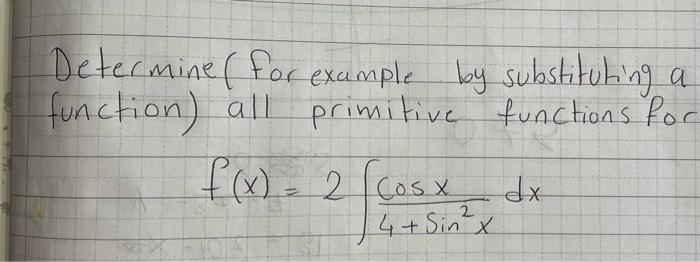 Determine (for example by substituting a
function) all primitive functions for
f(x) = 2 ∫ cos x / (4 + Sin² x) dx